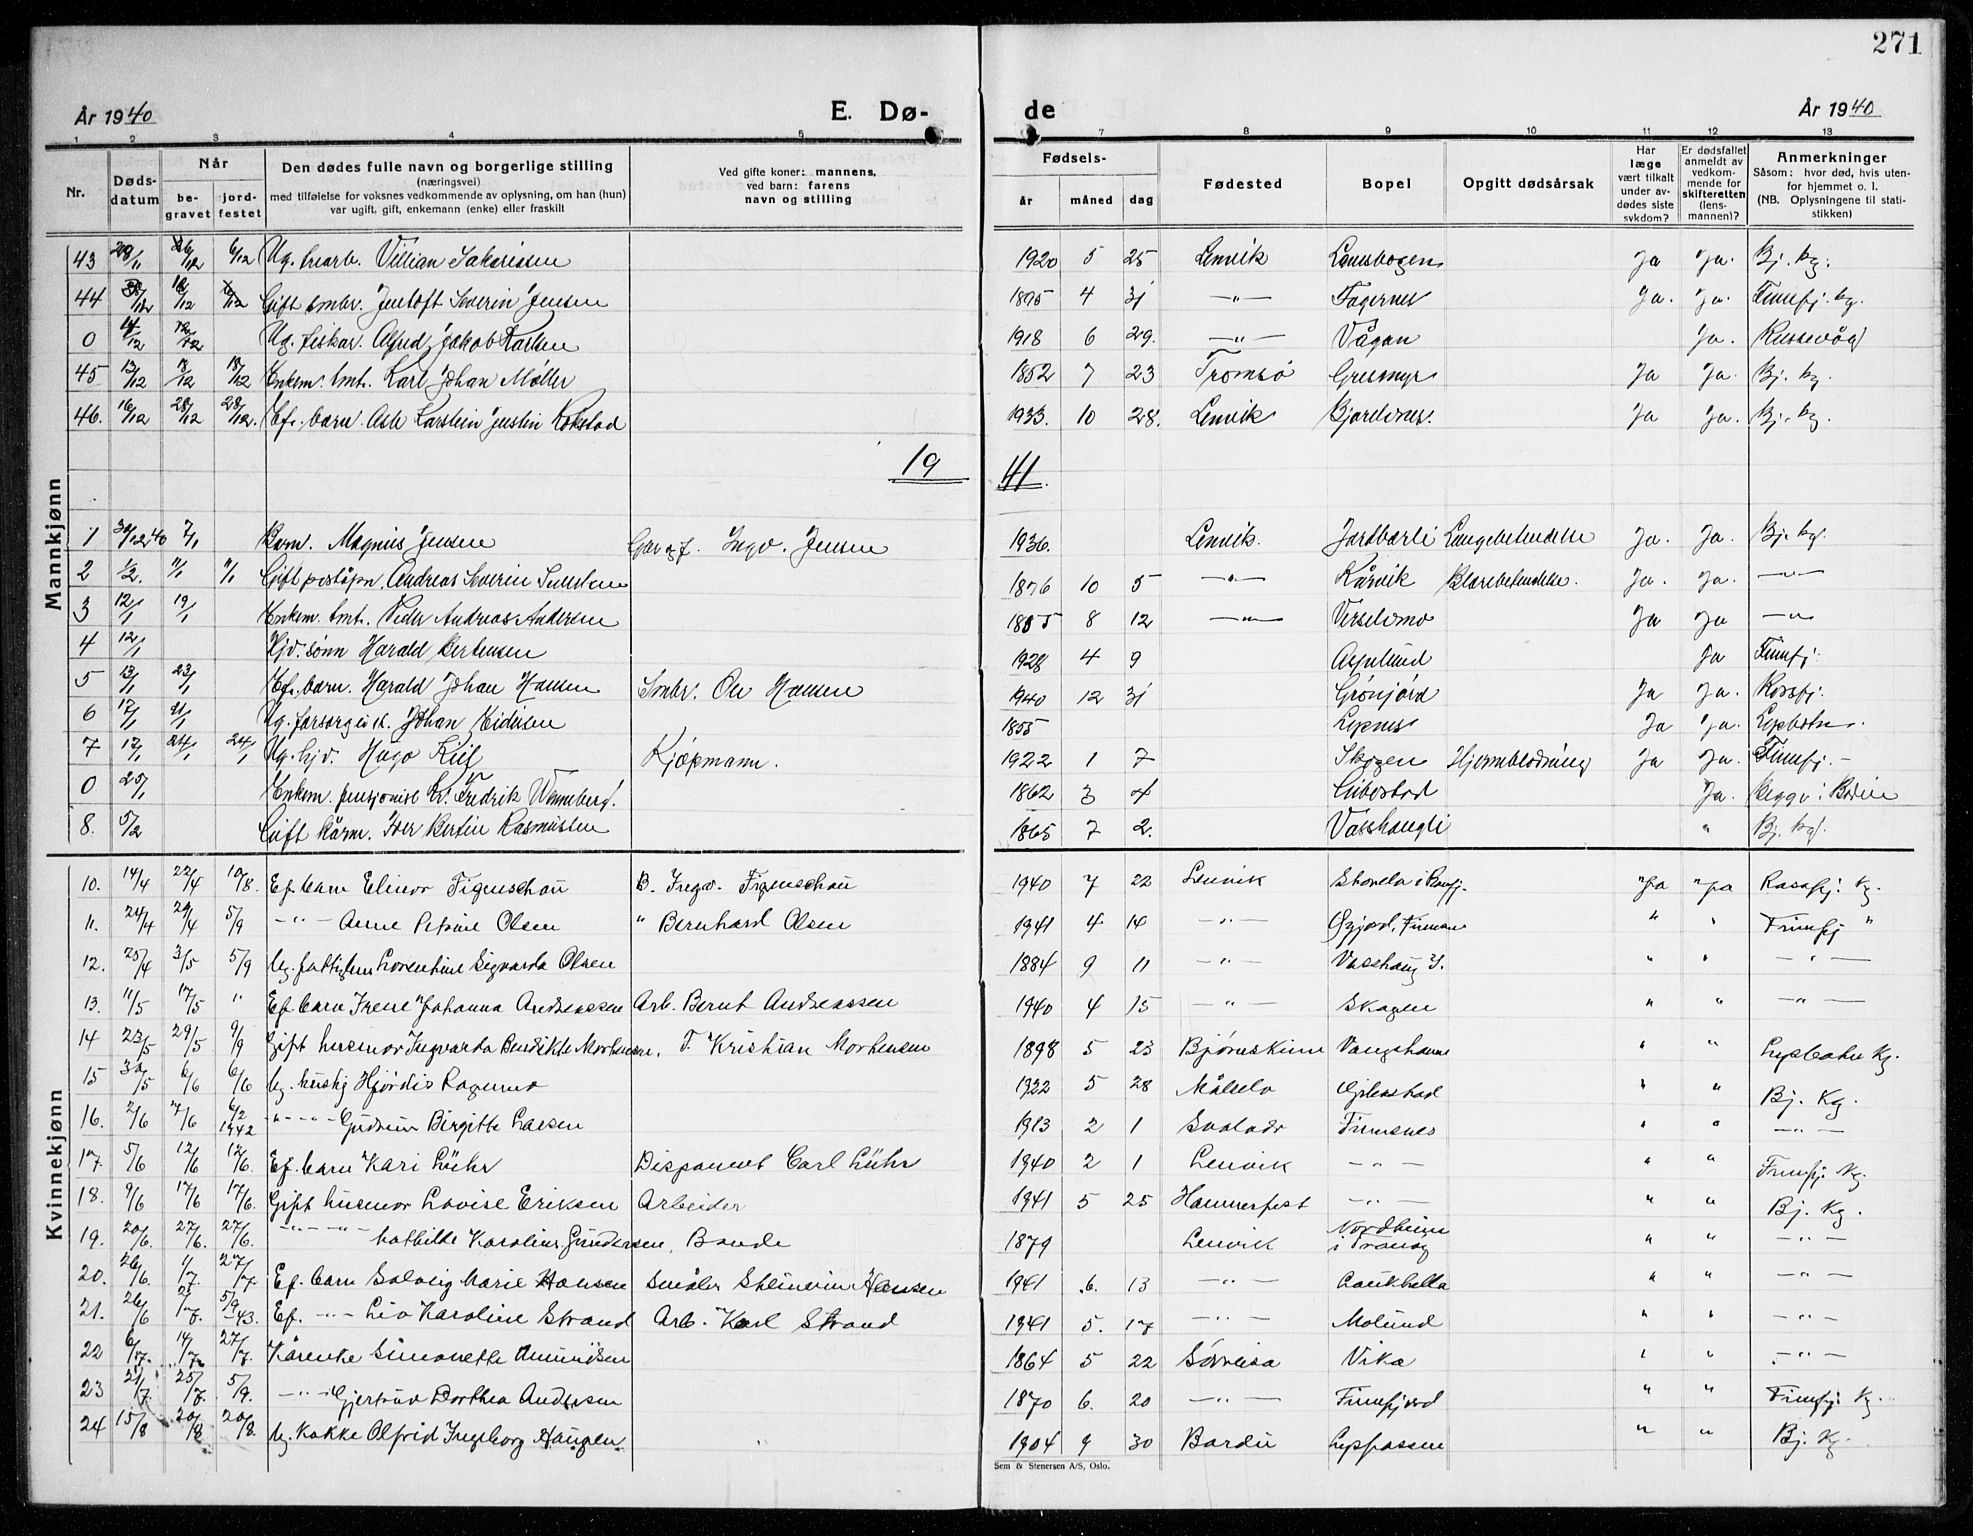 271
År 1940 E. Dø- de År 1940
1 2 3 4 5 7 8 9 10 11 12 13
Nr. Døds-datum Når be-gravet jord-festet
Den dødes fulle navn og borgerlige stilling
(næringsvei)
med tilføielse for voksnes vedkommende av oplysning, om han (hun)
var ugift, gift, enkemann (enke) eller fraskilt
Ved gifte koner: mannens,
ved barn: farens
navn og stilling
Fødsels- år måned dag
Fødested Bopel Opgitt dødsårsak
Har læge vært tilkalt under av-dødes siste sykdom?
Er dødsfallet anmeldt av vedkom-mende for skifteretten (lens-mannen)?
Anmerkninger
Såsom: hvor død, hvis uten-for hjemmet o. l.
(NB. Oplysningene til stati-stikken)
Mannkjønn
43 28/11 6/12 6/12 Ug. Villian Sakarissen 1920 5 25 Lenvik Ja Ja. Bj. kg.
44 Gift smbr. Jentoft Severin Jensen 1895 4 31 -"- Fagernes Ja. Ja. Finnfj. kg.
0 14/12 Ug. fisker. Alfred Jakob Karlsen 1918 6 29. -"- Vågan Ja.
45 13/12 18/12 18/12 Enkem. Karl Johan Møller 1852 7 23 Tromsø Gresmyr Ja Ja. Bj. kg.
46. 16/12 28/12 28/12. Ef. barn Karstein Justin Rokstad 1933. 10 28. Lenvik Gjorelvnes. Ja Ja. Bj. kg.
19 41.
1 30/12 40 7/1 Barn. Magnus Jensen Ingv. Jensen 1936. Lenvik. Jordbærli Lungebetendelse Ja. Ja. Bj. kg.
2 1/2. 11/1 11/1 Gift poståpn. Andreas Severin 1876 10 5 -"- Kårvik Blærebetendelse. Ja. Ja. -"-
3 12/1 19/1 Enkem. Peder Andreas Andersen 1855 8 12 -"- Ja Ja -"-
4 12/1 Hjv. sønn Harald Berntsen 1928 4 9 Ja Finnfj.
5 13/1 23/1 Ef. barn. Harald Johan Hansen Smbr. Hansen 1940 12 31 Grønjord Ja Ja. Rossfj.
6 17/1 21/1 Ug. forsorgsu. Johan 1855 Lysnes Ja Ja. Lysbotn.
7 17/1 24/1 24/1 Ug. hjv. Hugo Kiil Kjøpmann. 1922 1 7 Skogen Hjerneblødning Ja Ja. Finnfj. -
0 25/1 Enkem. pensjonist Fredrik Wenneberg. 1862 3 4 Gibostad Ja.
8. 5/2 Gift Iver Bertin Rasmussen 1865 7 2. Vasshaugli " Bj. kg.
Kvinnekjønn
10. 14/4 22/4 10/8. Ef. barn Elinor Figenschou B. Ingv. Figenschou 1940 7 22 Lenvik "Ja "Ja Rossfj. Kg.
11. 24/4 29/4 5/9 -"- Anne Petrine Olsen " Bernhard Olsen 1941 4 14 -"- " " Finnfj "
12. 25/4 3/5 5/9 Ug. fattiglem Lorentine Sigvarda Olsen 1884 9 11 -"- Vasshaug " " -"-
13. 11/5 17/5 " Ef. barn Irene Johanna Andreassen Arb. Bernt Andreassen 1940 4 15 -"- Skogen " " -"-
14 23/5 29/5 9/9 Gift husmor Ingvarda Benedikte Mortensen. F. Kristian Mortensen 1898 5 23 Bjørneskinn Vangshavn " " Lysbotn Kg.
15 30/5 6/6 6/6 Ug. hushj Hjørdis 1922 5 28 Målselv " " Bj. Kg.
16. 2/6 7/6 6/2 1942 -"- Gudrun Birgitte Larsen 1913 2 1 Finnsnes " " -"-
17. 5/6 12/6 12/6. Ef. barn Kari Lühr Disponent Carl Lühr 1940 2 1 Lenvik -"- " " Finnfj. Kg.
18. 9/6 17/6 17/6. Gift husmor Lovise Eriksen Arbeider 1941 5 25 Hammerfest -"- " " Bj. Kg.
19. 20/6. 27/6. 27/6. -"- -"- Mathilde Karoline Gundersen, Bonde 1879 Lenvik Nordheim i Tranøy " " -"-
20. 26/6. 1/7. 27/7. Ef. barn Solveig Marie Hansen Hansen 1941 6. 13 -"- Laukhella " " -"-
21. 26/6 5/9 -43. Ef. -"- Liv Karoline Strand Arb. Karl Strand 1941 5. 17 -"- Molund " " -"-
22 6/7. 14/7. 27/7. Kårenke Simonette Amundsen 1864 5 22 Sørreisa Vika " " -"-
23 21/7. 25/7. 5/9. -"- Gjertrud Dorthea Andersen 1870 6. 20 -"- Finnfjord " " Finnfj. Kg.
24 15/8 20/8 20/8. Ug. Kokke Olfrid Ingeborg Haugen 1904 9 30 Bardu " " Bj. Kg.
Sem & Stenersen A/S, Oslo.